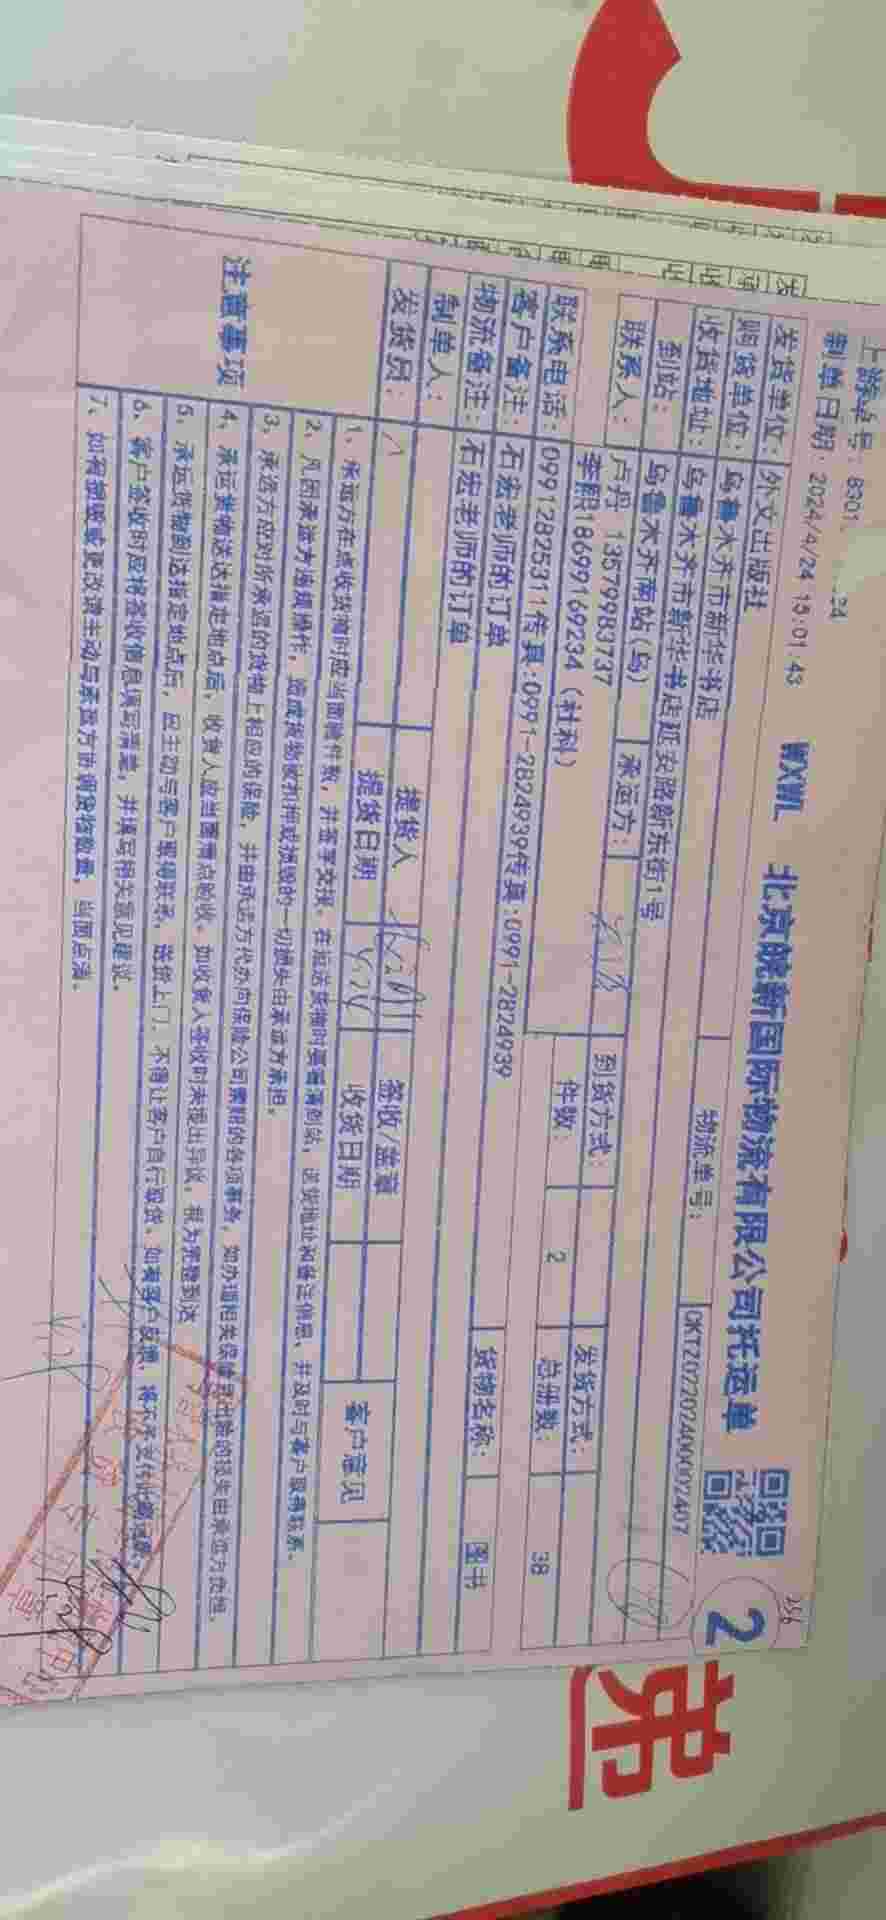 上游单号：8301
制单日期：2024/4/24 15:01:43
WXWL 北京皖新国际物流有限公司托运单
2
发货单位：外文出版社
购货单位：乌鲁木齐市新华书店
物流单号：
收货地址：乌鲁木齐市新华书店延安路新东街1号
到站：乌鲁木齐南站(乌) 承运方： 到货方式： 发货方式：
联系人：卢丹 13579983737
李熙18699169234（社科）
件数： 2 总册数： 38
联系电话：09912825311传真:0991-2824939传真:0991-2824939
客户备注：石宏老师的订单 货物名称： 图书
物流备注：石宏老师的订单
制单人：
发货员： 提货人 签收/盖章 客户意见
提货日期 4.24 收货日期
注意事项
1、承运方在点收货物时应当面验件数，并签字交接。在运送货物时要看清到站、送货地址和备注信息，并及时与客户取得联系。
2、凡因承运方违规操作，造成货物被扣押或损毁的一切损失由承运方承担。
3、承运方应对所承运的货物上相应的保险，并由承运方代办向保险公司索赔的各项事务，如办理相关保险
4、承运货物送达指定地点后，收货人应当面清点验收。如收货人签收时未提出异议，视为完整到达
5、承运货物到达指定地点后，应主动与客户取得联系、送货上门，不得让客户自行取货。如有客户反馈，将不予支付此票运费。
6、客户签收时应将签收信息填写清楚，并填写相关意见建议。
7、如有捆破或更改请主动与承运方协调货物数量，当面点清。
弟